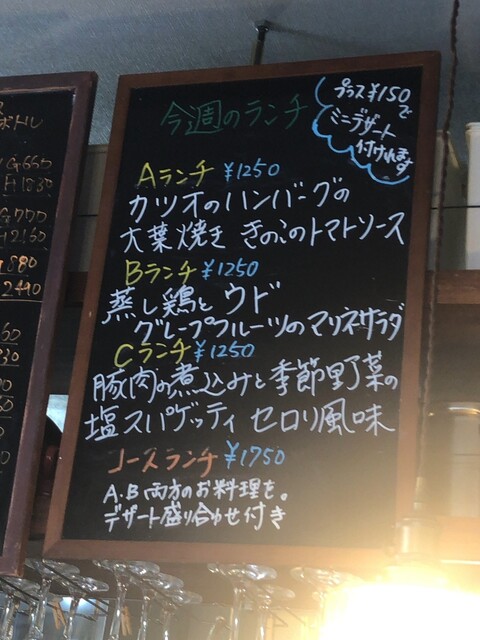 ボトル
G 700
880
2490
今週のランチ
プラス¥150で
ミニデザート
付けれます
Aランチ ¥1250
カツオのハンバーグの
大葉焼き きのこのトマトソース
Bランチ ¥1250
蒸し鶏と ウド
グレープフルーツのマリネサラダ
Cランチ ¥1250
豚肉の煮込みと季節野菜の
塩スパゲッティ セロリ風味
コースランチ ¥1750
A.B 両方のお料理を。
デザート盛り合わせ付き